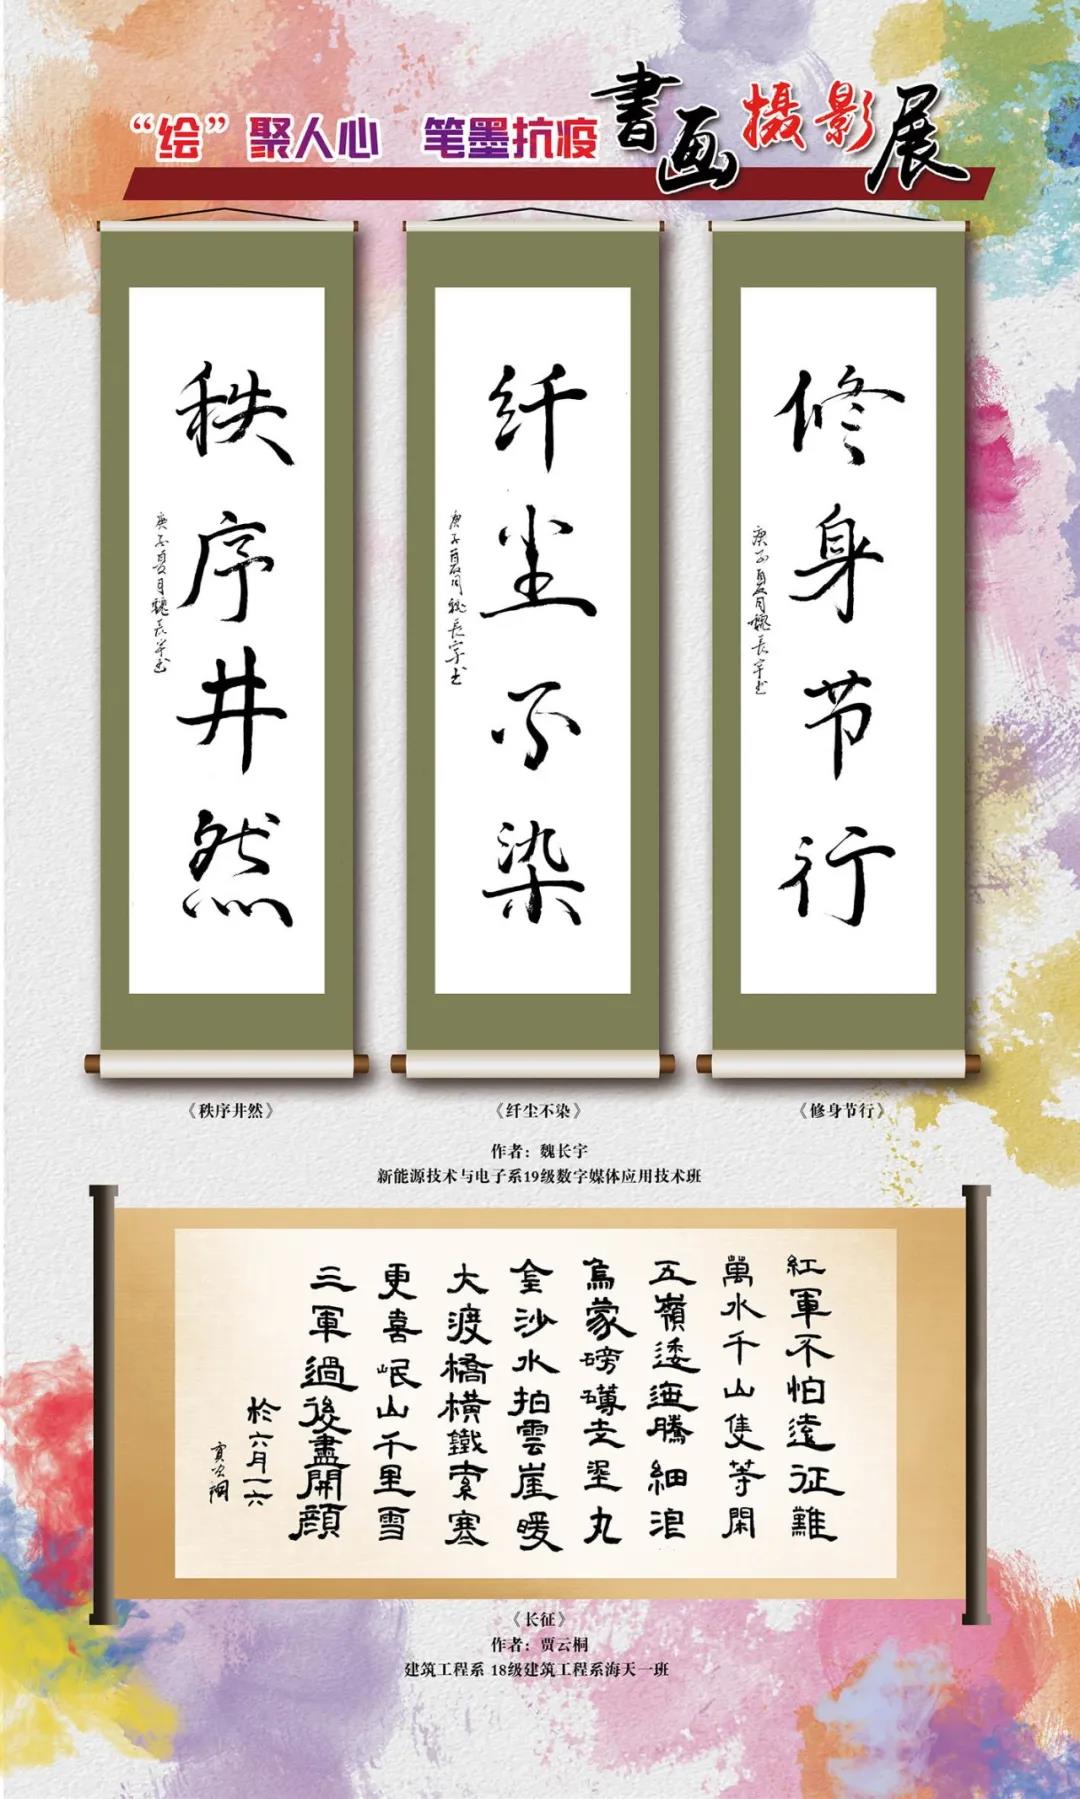 “绘”聚人心 笔墨抗疫 書画摄影展
秩序井然
庚子夏月魏长宇书
纤尘不染
庚子夏月魏长宇书
修身节行
庚子夏月魏长宇书
《秩序井然》
《纤尘不染》
《修身节行》
作者：魏长宇
新能源技术与电子系19级数字媒体应用技术班
紅軍不怕遠征難
萬水千山隻等閑
五嶺逶迤騰細浪
烏蒙磅礴走泥丸
金沙水拍雲崖暖
大渡橋橫鐵索寒
更喜岷山千里雪
三軍過後盡開顏
於六月一六
《长征》
作者：贾云桐
建筑工程系 18级建筑工程系海天一班